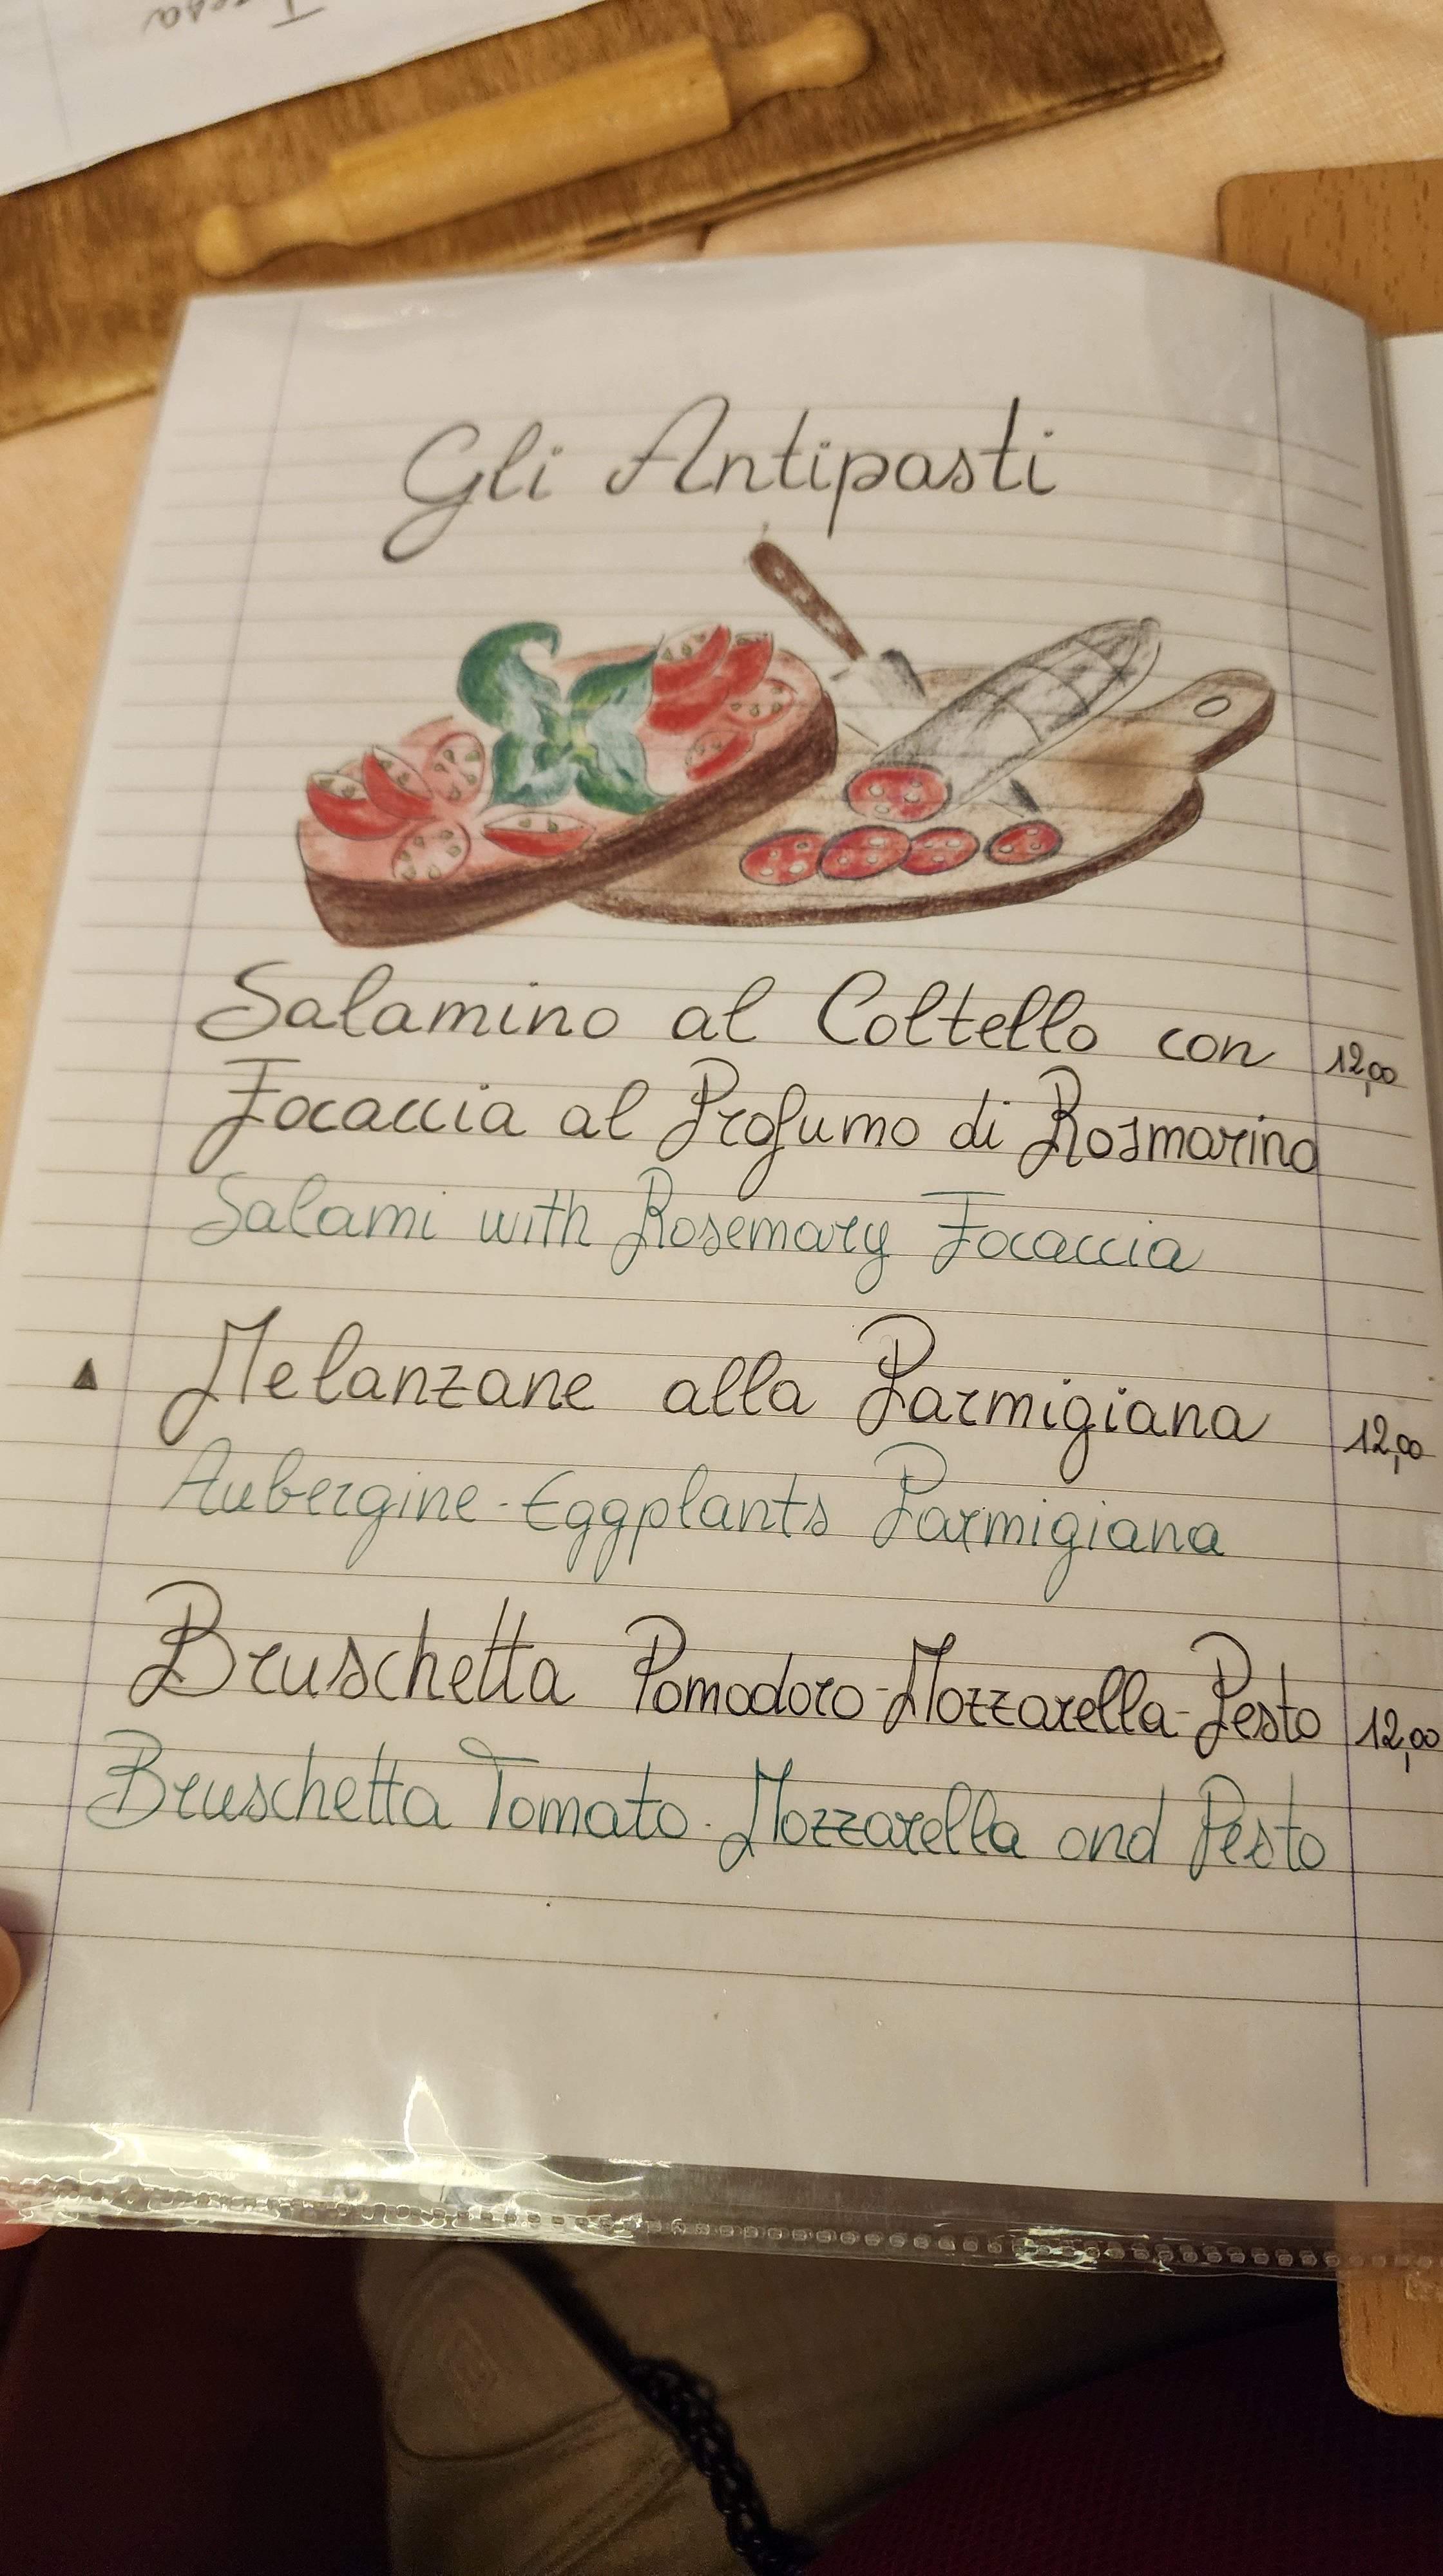 Gli Antipasti
Salamino al Coltello con 12,00
Focaccia al Profumo di Rosmarino
Salami with Rosemary Focaccia
▲ Melanzane alla Parmigiana 12,00
Aubergine-Eggplants Parmigiana
Bruschetta Pomodoro-Mozzarella-Pesto 12,00
Bruschetta Tomato-Mozzarella and Pesto